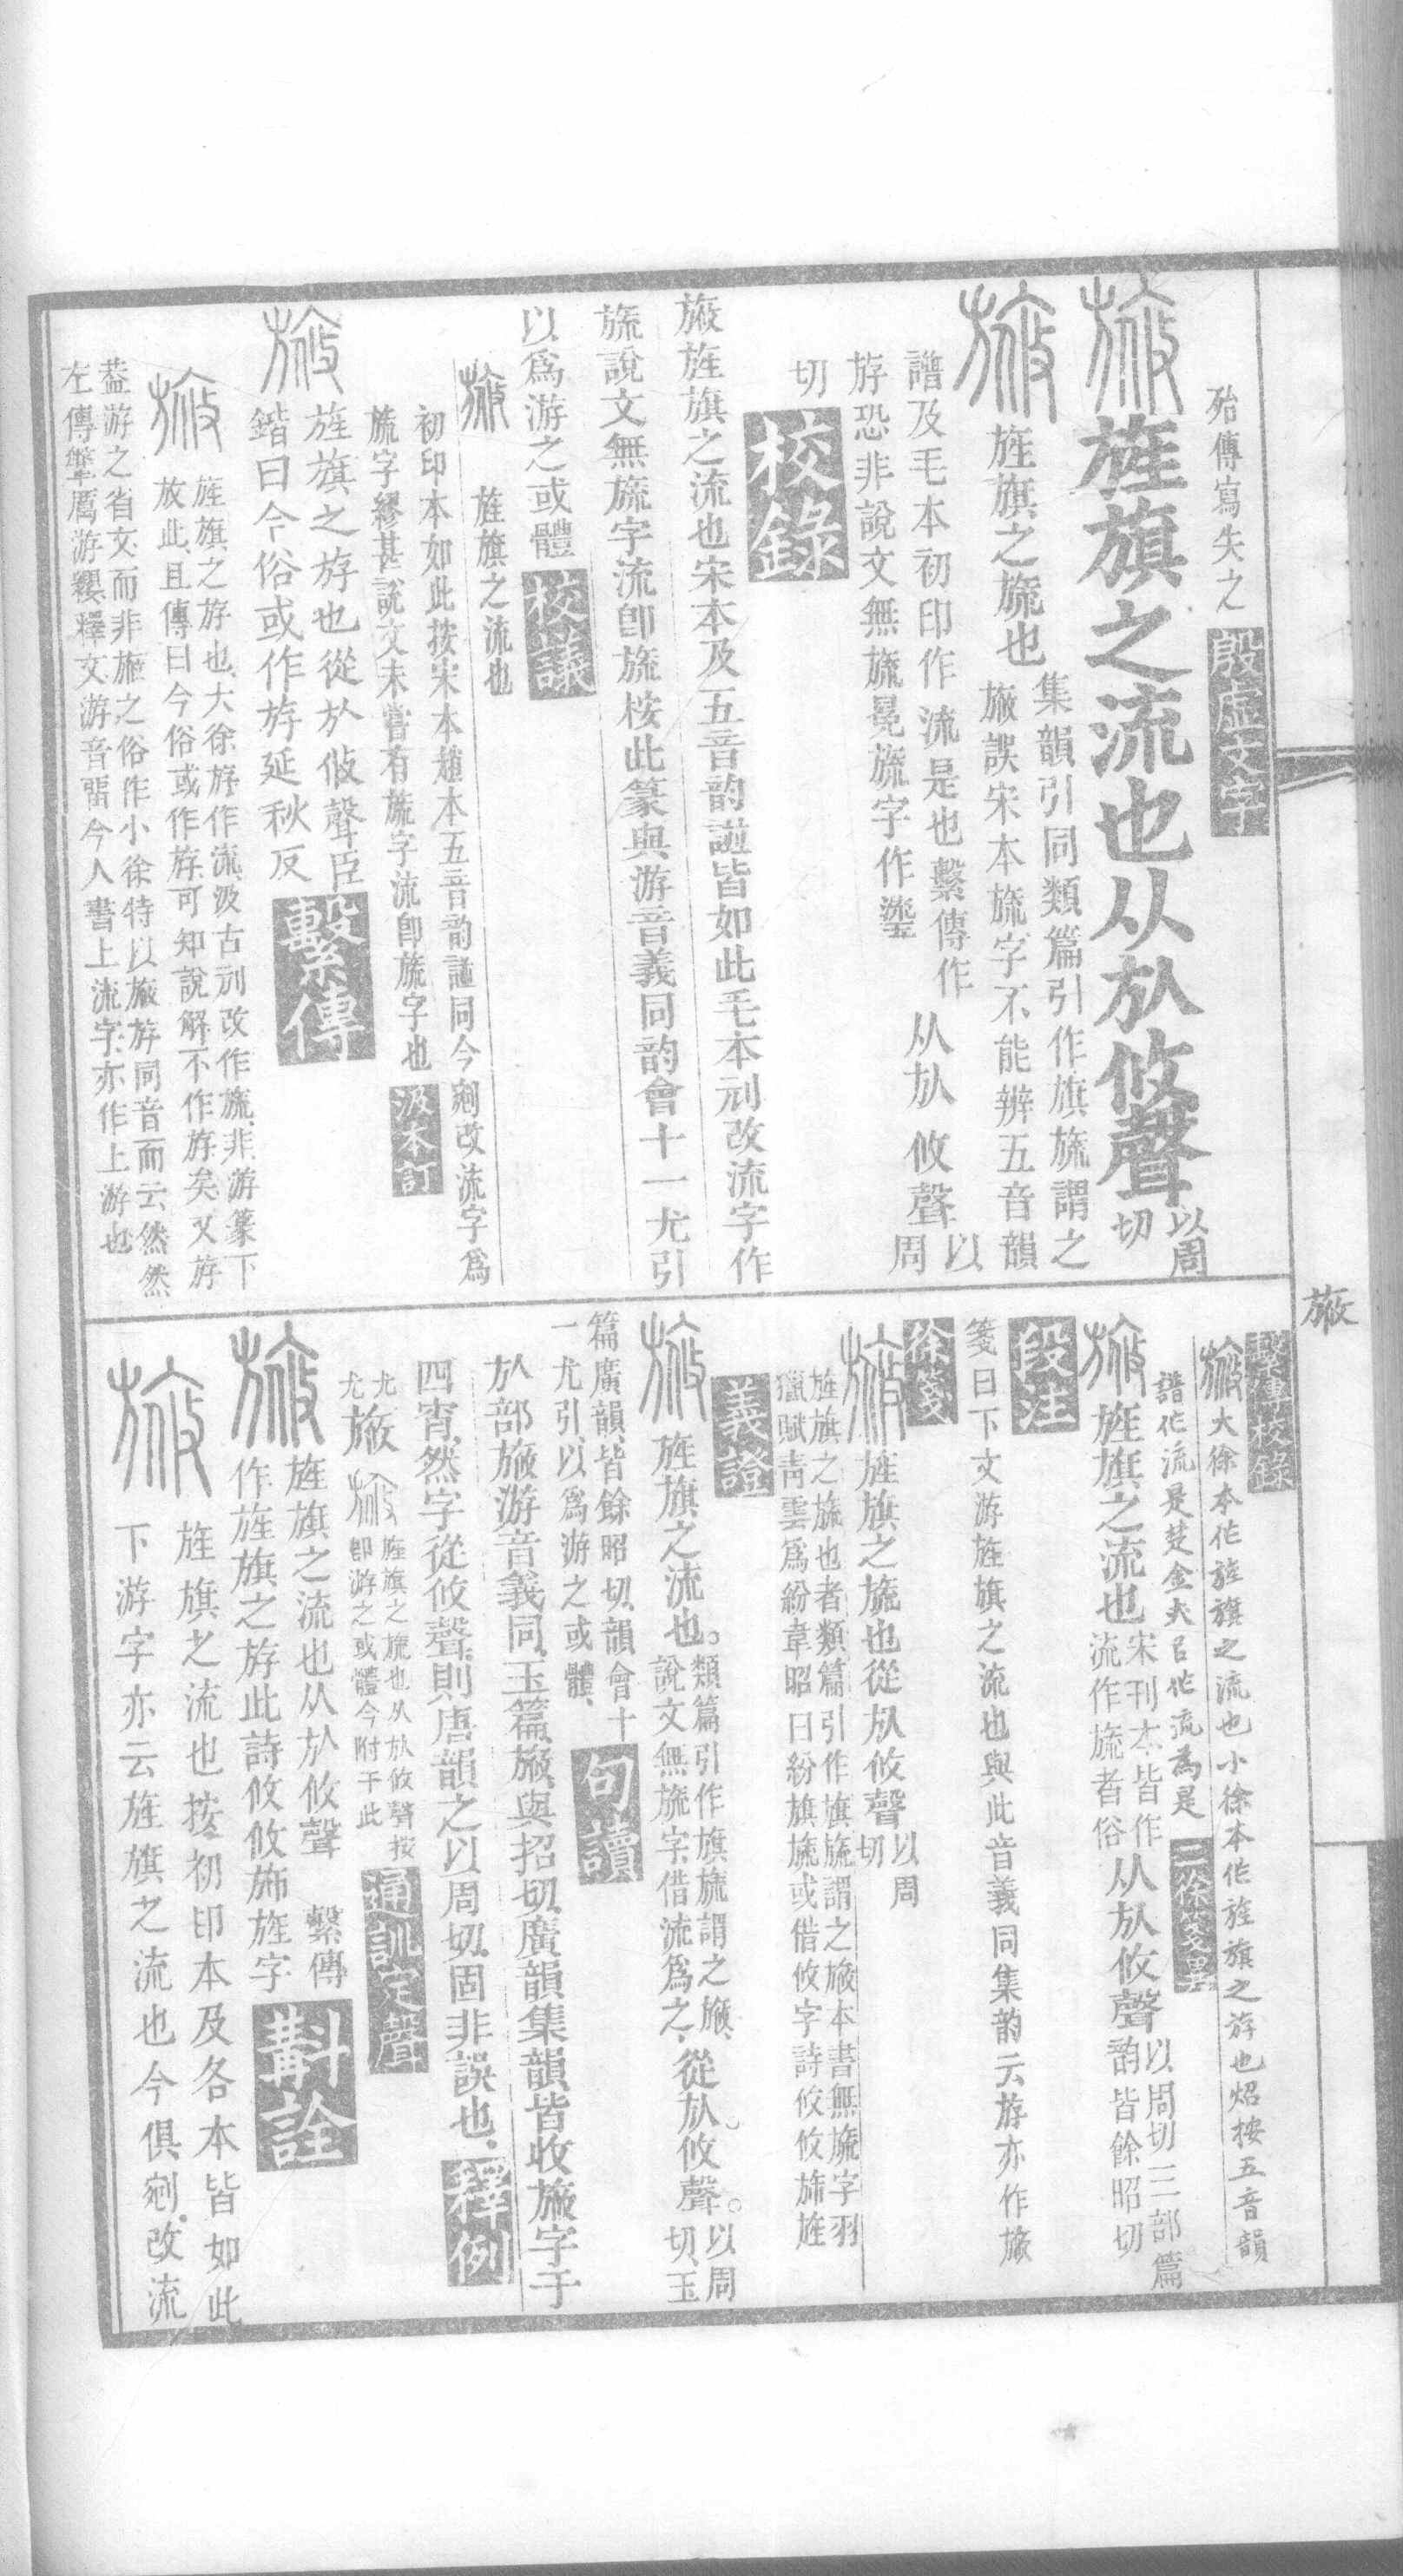 殆傳寫失之
殷虛文字
旌旗之流也从㫃攸聲
以周
切
旌旗之旒也
集韻引同類篇引作旗旒謂之
㫍誤宋本旒字不能辨五音韻
譜及毛本初印作流是也繫傳作
斿恐非說文無旒冕旒字作瑬
从㫃攸聲
以
周
切
校錄
㫍旌旗之流也宋本及五音韵譜皆如此毛本刓改流字作
旒說文無旒字流卽旒桉此篆與游音義同韵會十一尤引
以爲游之或體
校議
旌旗之流也
初印本如此按宋本趙本五音韵譜同今剜改流字爲
旒字繆甚說文未嘗有旒字流卽旒字也
汲本訂
旌旗之斿也從㫃攸聲臣
鍇曰今俗或作斿延秋反
繫傳
旌旗之斿也大徐斿作流汲古刓改作旒非游篆下
放此且傳曰今俗或作斿可知說解不作斿矣又斿
葢游之省文而非旒之俗作小徐特以㫍斿同音而云然然
左傳鞶厲游纓釋文游音畱今人書上流字亦作上游也
㫍
繫傳校錄
大徐本作旌旗之流也小徐本作旌旗之斿也炤按五音韻
譜作流是楚金大呂作流為是
二徐箋異
旌旗之流也
宋刊本皆作
流作旒者俗
从㫃攸聲
以周切三部篇
韵皆餘昭切
段注
箋曰下文游旌旗之流也與此音義同集韵云斿亦作㫍
徐箋
旌旗之旒也從㫃攸聲
以周
切
旌旗之旒也者類篇引作旗旒謂之㫍本書無旒字羽
獵賦青雲爲紛韋昭曰紛旗旒或借攸字詩攸攸斾旌
義證
旌旗之流也。
類篇引作旗旒謂之㫍、
說文無旒字、借流爲之、
從㫃。攸聲。
以周
切、玉
篇廣韻、皆餘昭切、韻會十
一尤引、以爲游之或體、
句讀
㫃部㫍游音義同、玉篇㫍、與招切、廣韻集韻皆收㫍字于
四宵、然字從攸聲、則唐韻之以周切、固非誤也、
釋例
尤
尤
㫍
旌旗之旒也从㫃攸聲按
卽游之或體今附于此
通訓定聲
旌旗之流也从㫃攸聲
繫傳
作旌旗之斿此詩攸攸斾旌字
斠詮
旌旗之流也按、初印本及各本皆如此
下游字亦云旌旗之流也今俱剜、改流